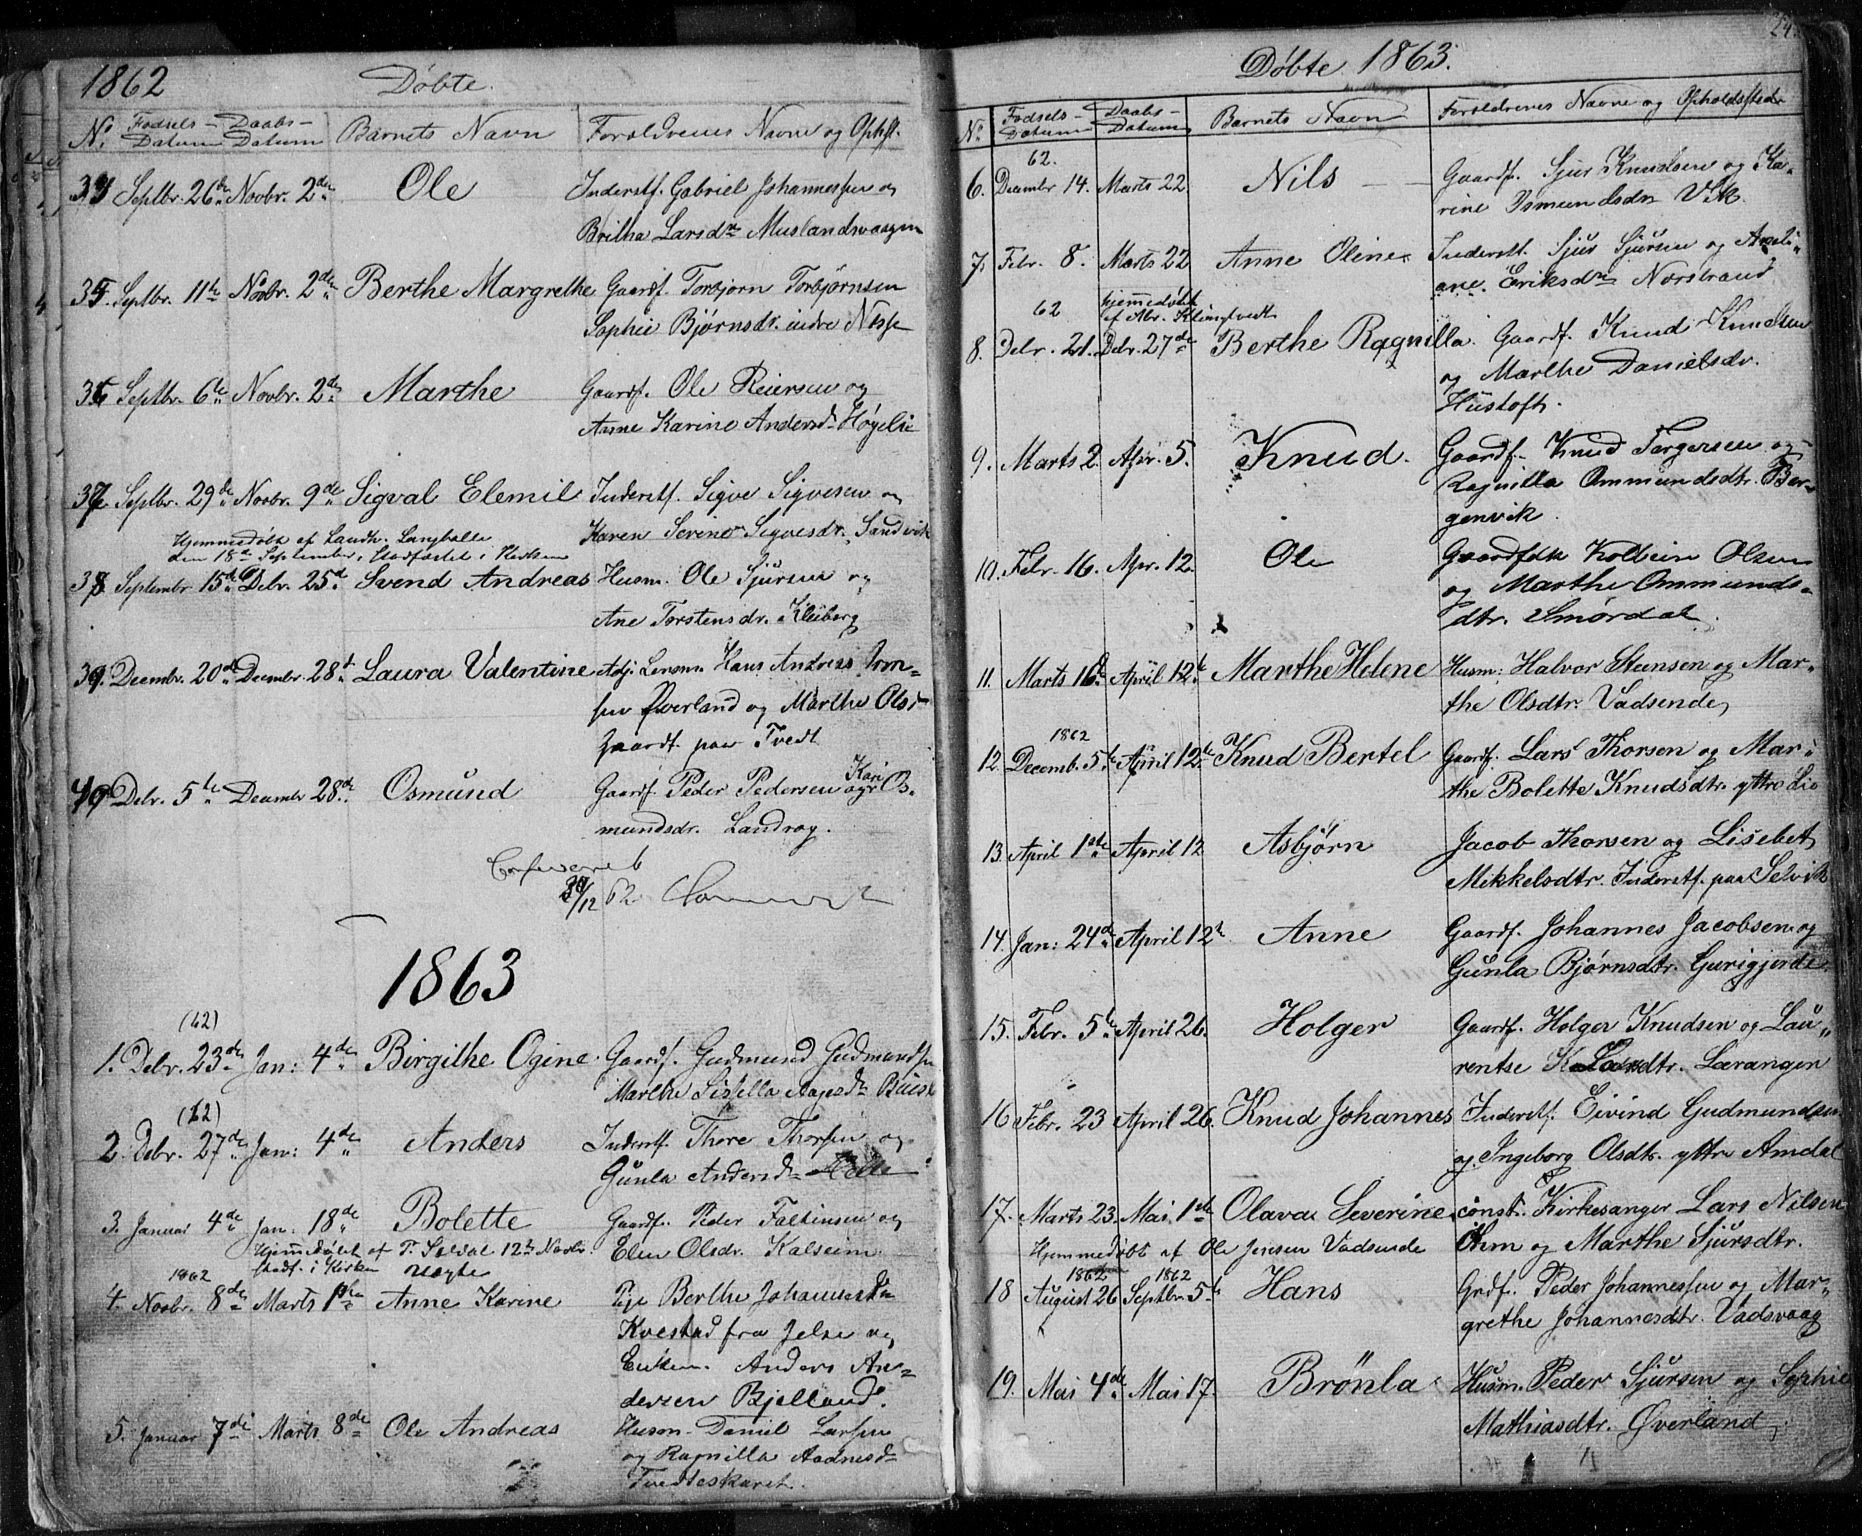 1862 Döbte.
No. Födsels-Datum Daabs-Datum Barnets Navn Foreldrenes Navne og Opholst.
34 Septbr. 26de Novbr. 2den Ole Inderstf. Gabriel Johannessen og
Britha Larsdr Muslandsvaagen
35. Septbr. 11te Novbr. 2den Berthe Margrethe Gaardf. Torbjörn Torbjörnsen
Sophie Bjørnsdr. indre
36 Septbr. 6te Novbr. 2den Marthe Gaardf. Ole Reiersen og
Anne Karine Andersdr Høgelie
37 Septbr. 29de Novbr. 9de Sigval Elemil Inderstf. Sigve Sigvesen og
Karen Serine Sigvesdr. Sandvik
Hjemmedöbt af Landh. Langballe
den 18de September, stadfæstet i Kirken
38 Septembr 15de Debr. 25de Svend Andreas Husm. Ole Sjursen og
Ane Torstensdr. Kleiberg
39. Decembr. 20de Decembr. 28de Laura Valentine Adj. Lensm. Hans Andreas
Øverland og Marthe Olsdr
Gaardf. paa Tvedt
40 Debr. 5te Decembr 28de. Osmund Gaardf. Peder Pedersen og Kari Os-
mundsdr. Landrøg.
Confereret
30/12 62
1863
(62)
1. Debr. 23de Jan: 4de Birgithe Ogine. Gaardf. Gudmund Gudmundsen
Marthe Sissella Aagesdr
(62)
2. Debr. 27de Jan: 4de Anders Inderstf. Thore Thorsen og
Gunla Andersdr
3. Januar 4de Jan. 18de Bolette Gaardf. Peder Faltinsen og
Elen Olsdr. Kalseim
Hjemmedöbt af T. 12te Novbr.
stadf. i Kirken uægte
1862
4. Novbr. 8de Marts 1ste Anne Karine Pige Berthe Johannesdr
Kvestad fra Jelse og
Enkem. Anders An-
dersen Bjelland.
5. Januar 7de Marts 8de Ole Andreas Husm. Daniel Larsen
og Ragnilla Aadnesdr
Tvedteskaret.
24.
Döbte 1863.
No. Födsels-Datum Daabs-Datum Barnets Navn Forældrenes Navne og Opholdssteder
62.
6. Decembr 14. Marts 22. Nils Gaardf. Sjur Knudsen og Ka-
rine Osmundsdr Vik.
7. Febr. 8. Marts 22 Anne Oline. Inderstf. Sjur Sjursen og Axeli-
ane. Eriksdr Norstrand
62 hjemmedöbt
af Abr. Klungtvedt
8. Debr. 21. Debr. 27de Berthe Ragnilla. Gaardf. Knud Knudsen
og Marthe Danielsdr.
Hustoft.
9. Marts 2. Apr. 5. Knud. Gaardf. Knud Torgersen og
Ragnilla Ommundsdtr. Ber-
genvik.
10. Febr. 16. Apr. 12. Ole Gaardfolk Kolbein Olsen
og Marthe Ommunds-
dtr. Smördal.
11. Marts 16de April 12te Marthe Helene Husm: Halvor Steensen og Mar-
the Olsdtr. Vadsende,
1862
12. Decemb. 5te April 12te Knud Bertel Gaardf. Lars Thorsen og Mar-
the Bolette Knudsdtr. yttre Lie
13. April 1ste April 12 Asbjørn Jacob Thorsen og Lisebet
Mikkelsdtr. Inderstf. paa Selvik
14. Jan: 24de April 12te Anne Gaardf. Johannes Jacobsen og
Gunla Bjørnsdtr. Gurigjerde.
15. Febr. 5te April 26. Holger Gaardf. Holger Knudsen og Lau-
rentse Larsdtr. Lærangen
16 Febr. 23 April 26. Knud Johannes Inderstf. Eivind Gudmundsen
og Ingeborg Olsdtr. yttre Amdal
17. Marts 23. Mai. 1ste Olava Severine const. Kirkesanger Lars Nilsen
Öhm og Marthe Sjursdtr.
Hjemmedöbt af Ole Jensen Vadsende
1862 1862
18 August 26 Septbr 5te Hans Grdf. Peder Johannessen og Mar-
grethe Johannesdtr. Vadsvaag
19. Mai 4de Mai 17. Brönla Husm. Peder Sjursen og Sophie
Mathiasdtr. Øverland,